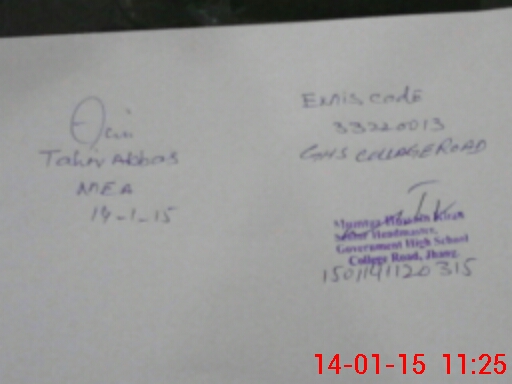 Tahir Abbas
MEA
14-1-15
EMIS code
33320013
GHS COLLAGE ROAD
Mumtaz Hussain Kiran
Senior Headmaster,
Government High School
College Road, Jhang.
1501141120315
14-01-15 11:25